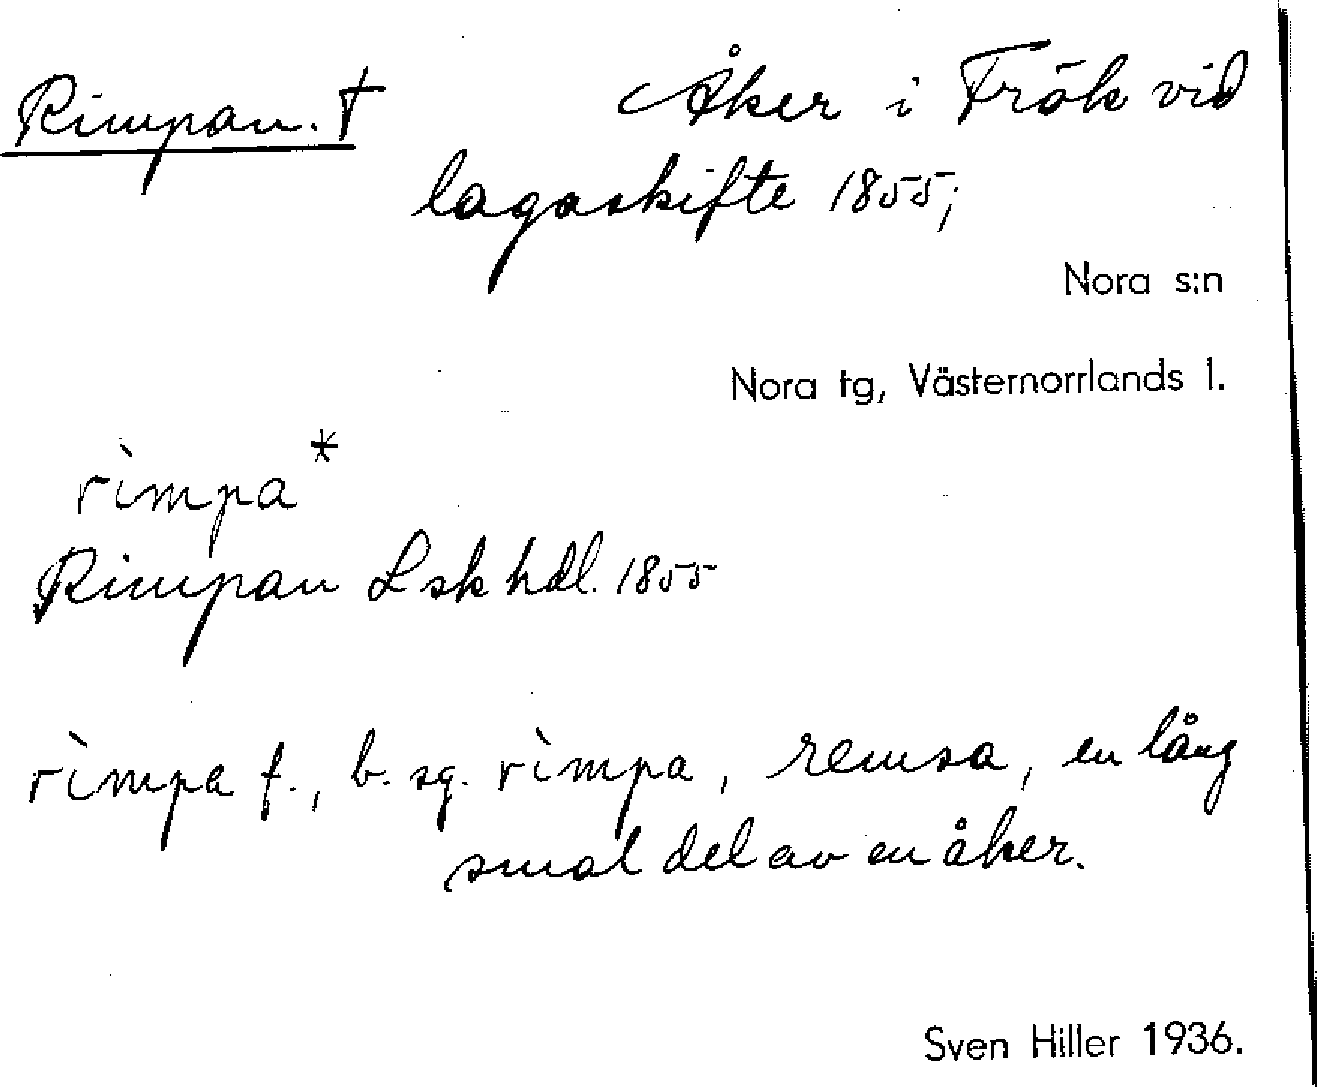 Rimpan. † Åker i Frök vid
lagaskifte 1855;
Nora s:n
Nora tg, Västernorrlands l.
rìmpa*
Rimpan Lskhdl. 1855
rìmpa f., b. sg. rìmpa, remsa, en lång
smal del av en åker.
Sven Hiller 1936.